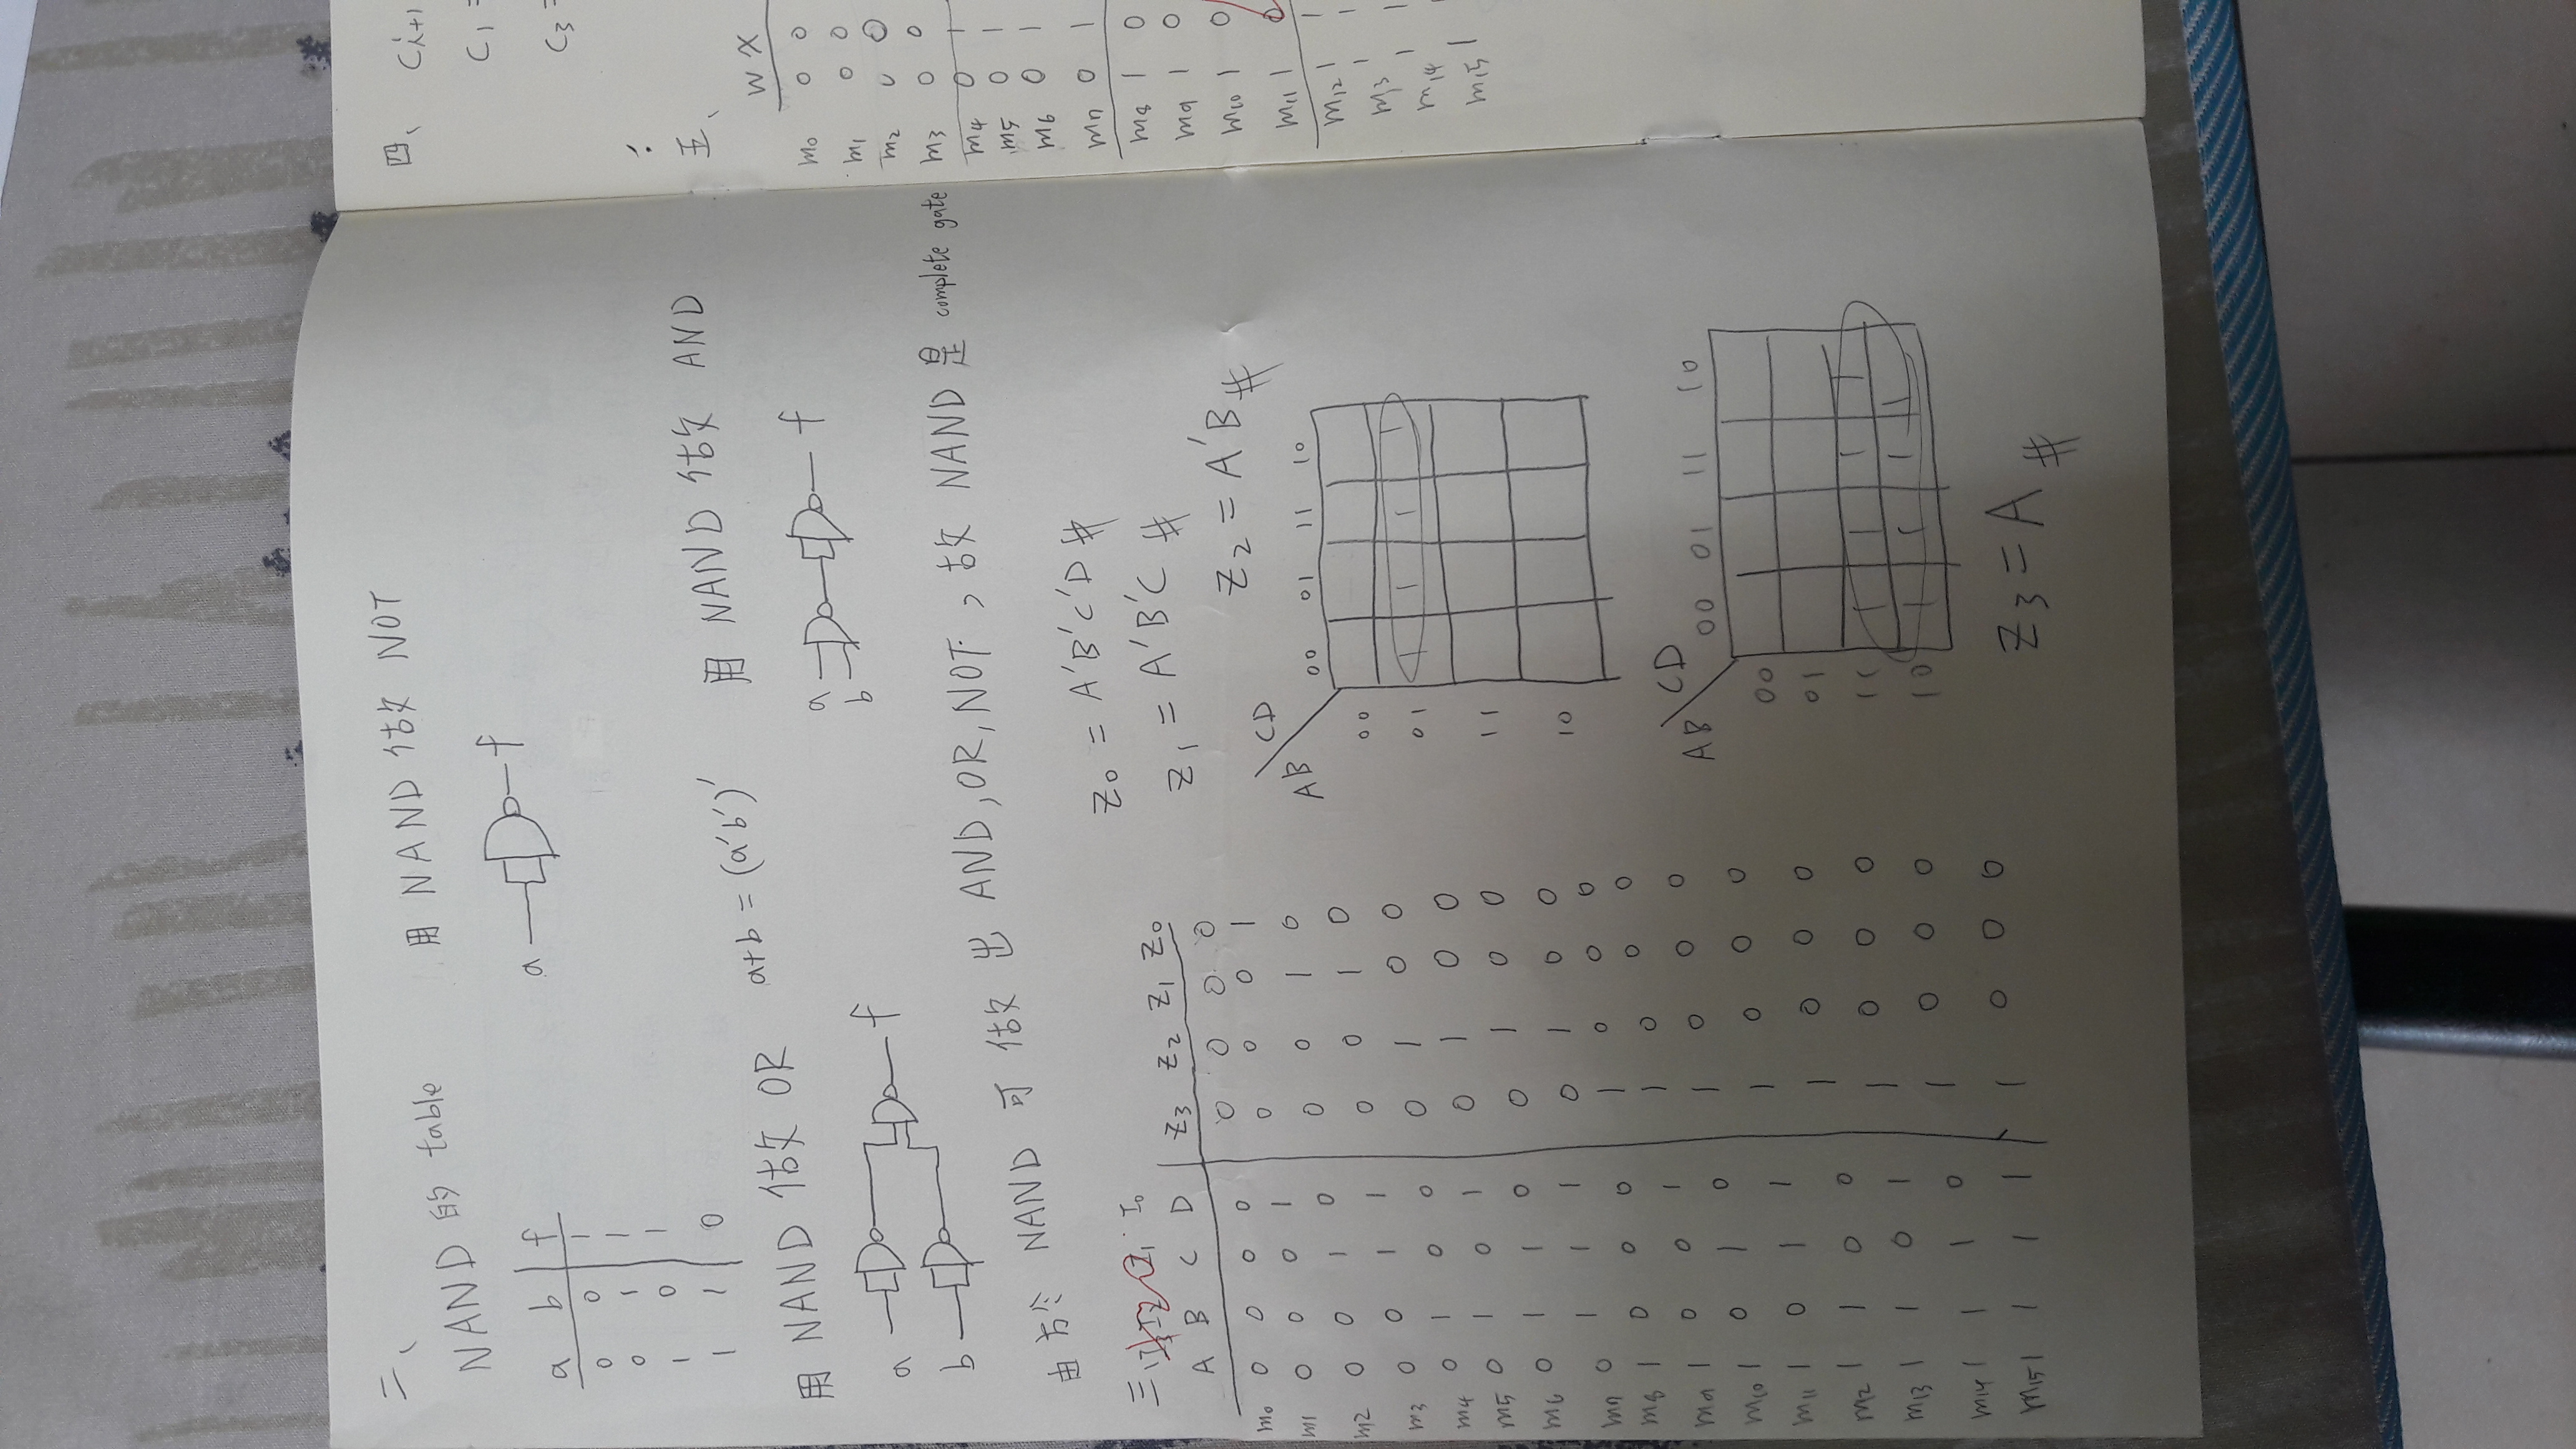 二、
NAND 的 table
用 NAND 做 NOT
a b f
0 0 1
0 1 1
1 0 1
1 1 0
a f
用 NAND 做 OR a+b = (a'b')'
a
b
f
用 NAND 做 AND
a
b
f
由於 NAND 可做出 AND, OR, NOT, 故 NAND 是 complete gate
三、
I0
A B C D Z3 Z2 Z1 Z0
m0 0 0 0 0 0 0 0 0
m1 0 0 0 1 0 0 0 1
m2 0 0 1 0 0 0 1 0
m3 0 0 1 1 0 0 1 0
m4 0 1 0 0 0 1 0 0
m5 0 1 0 1 0 1 0 0
m6 0 1 1 0 0 1 0 0
m7 0 1 1 1 0 1 0 0
m8 1 0 0 0 1 0 0 0
m9 1 0 0 1 1 0 0 0
m10 1 0 1 0 1 0 0 0
m11 1 0 1 1 1 0 0 0
m2 1 1 0 0 1 0 0 0
m13 1 1 0 1 1 0 0 0
m14 1 1 1 0 1 0 0 0
m15 1 1 1 1 1 0 0 0
Z0 = A'B'C'D #
Z1 = A'B'C #
Z2 = A'B #
CD
AB
00 01 11 10
00
01 1 1 1 1
11
10
CD
AB
00 01 11 10
00
01
11 1 1 1 1
10 1 1 1 1
Z3 = A #
四、 Ci+1
C1 =
C3 =
五、
W X
m0 0 0
m1 0 0
m2 0 0
m3 0 0
m4 0 1
m5 0 1
m6 0 1
m7 0 1
m8 1 0
m9 1 0
m10 1 0
m11 1 0
m12 1 1
m13 1 1
m14 1 1
m15 1